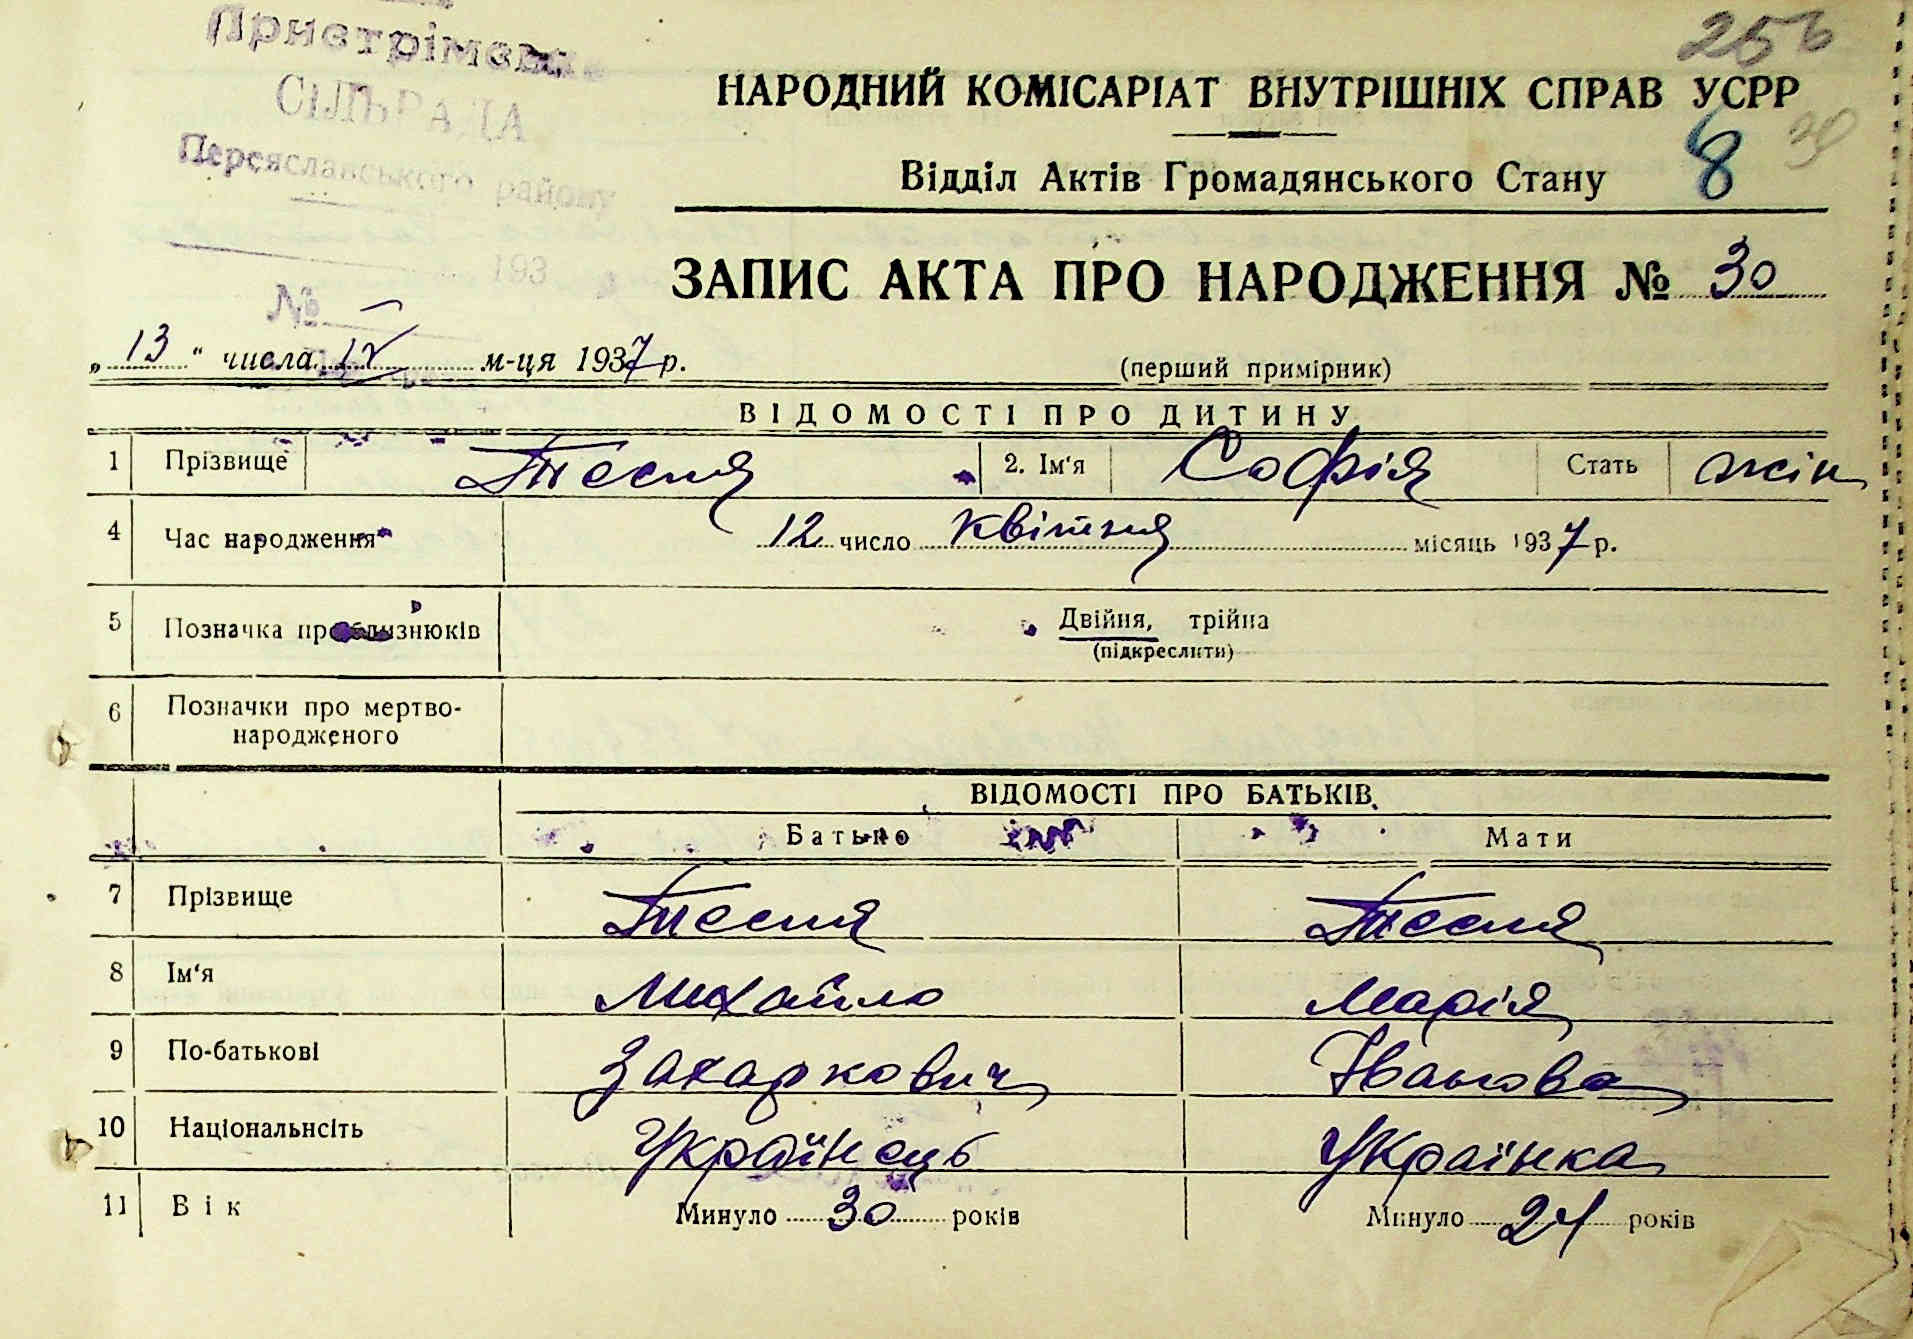 256
Пристромська
СІЛЬРАДА
Переяславського району
193
№
НАРОДНИЙ КОМІСАРІАТ ВНУТРІШНІХ СПРАВ УСРР
8 30
Відділ Актів Громадянського Стану
ЗАПИС АКТА ПРО НАРОДЖЕННЯ № 30
„13“ числа IV м-ця 1937 р.
(перший примірник)
ВІДОМОСТІ ПРО ДИТИНУ
1 Прізвище Тесля 2. Ім'я Софія Стать жін
4 Час народження 12 число квітня місяць 1937 р.
5 Позначка про близнюків Двійня, трійня
(підкреслити)
6 Позначки про мертво-
народженого
ВІДОМОСТІ ПРО БАТЬКІВ
Батько Мати
7 Прізвище Тесля Тесля
8 Ім'я Михайло Марія
9 По-батькові Захаркович Іванова
10 Національнсіть Українець Українка
11 Вік Минуло 30 років Минуло 24 років